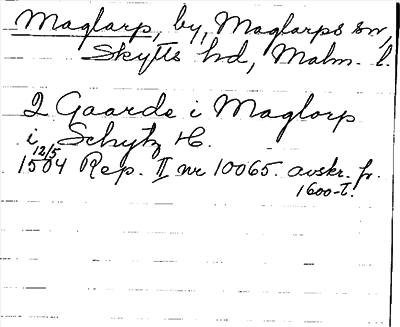 Maglarp, by, Maglarps sn,
Skytts hd, Malm. l.
2 Gaarde i Maglarp
i Schytz H.
12/5
1504 Rep. II nr 10065. avskr. fr.
1600-t.